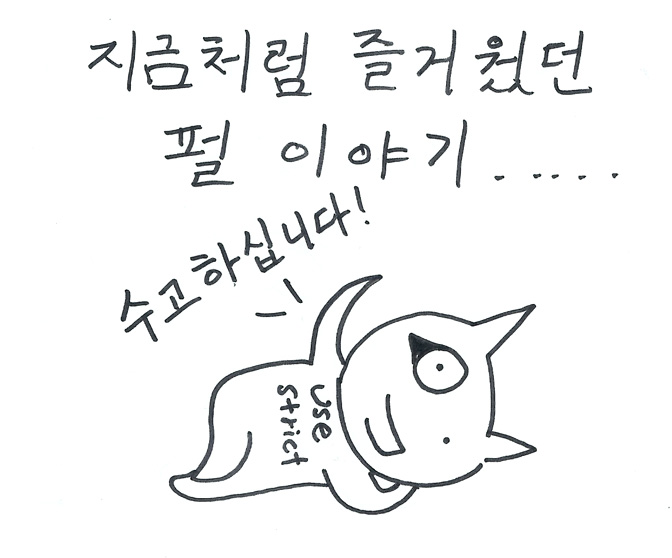 지금처럼 즐거웠던
펄 이야기......
수고하십니다!
use
strict